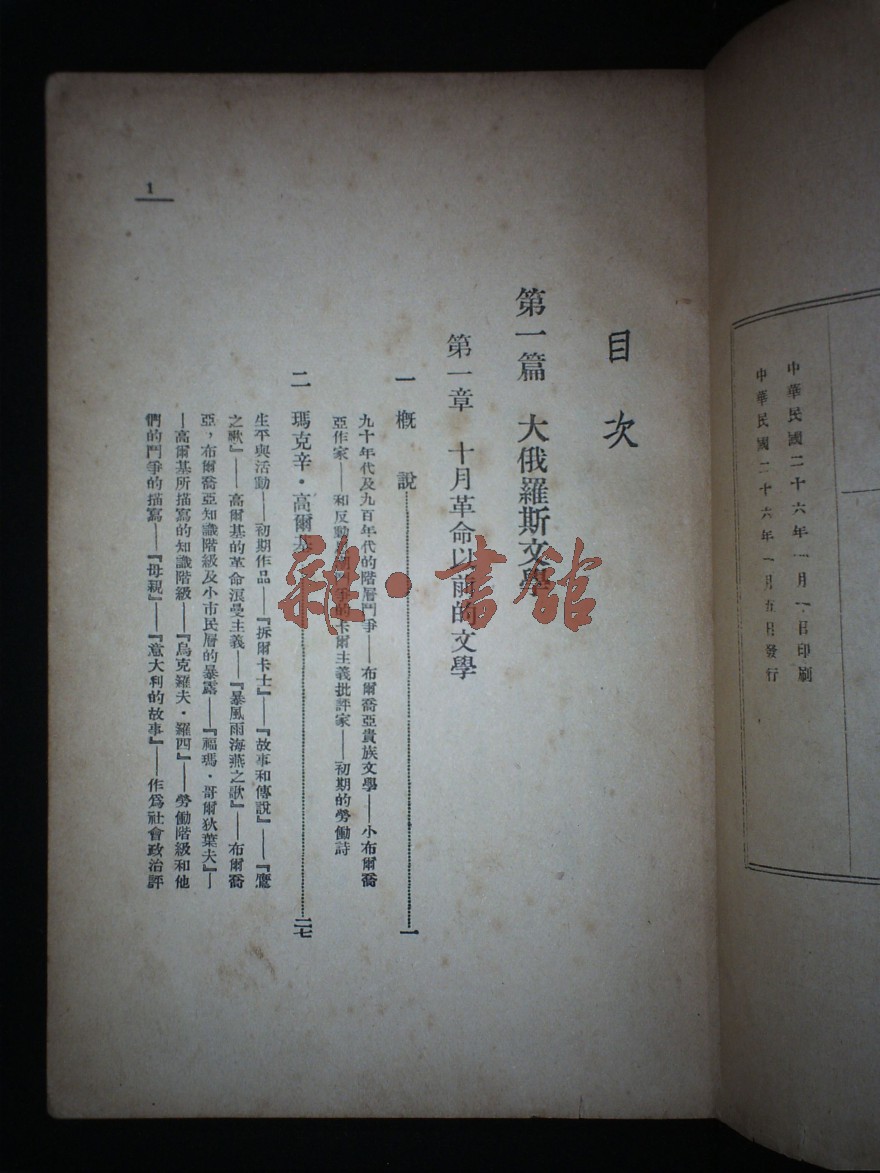 中華民國二十六年一月一日印刷
中華民國二十六年一月五日發行
目次
第一篇 大俄羅斯文學
第一章 十月革命以前的文學
一 概說 一
九十年代及九百年代的階層鬥爭——布爾喬亞貴族文學——小布爾喬
亞作家——和反動 的卡爾主義批評家——初期的勞働詩
二 瑪克辛・高爾基 二七
生平與活動——初期作品——『拆爾卡士』——『故事和傳說』——『鷹
之歌』——高爾基的革命浪曼主義——『暴風雨海燕之歌』——布爾喬
亞，布爾喬亞知識階級及小市民層的暴露——『福瑪・哥爾狄葉夫』—
—高爾基所描寫的知識階級——『烏克羅夫・羅四』——勞働階級和他
們的鬥爭的描寫——『母親』——『意大利的故事』——作爲社會政治評
1
雜・書館